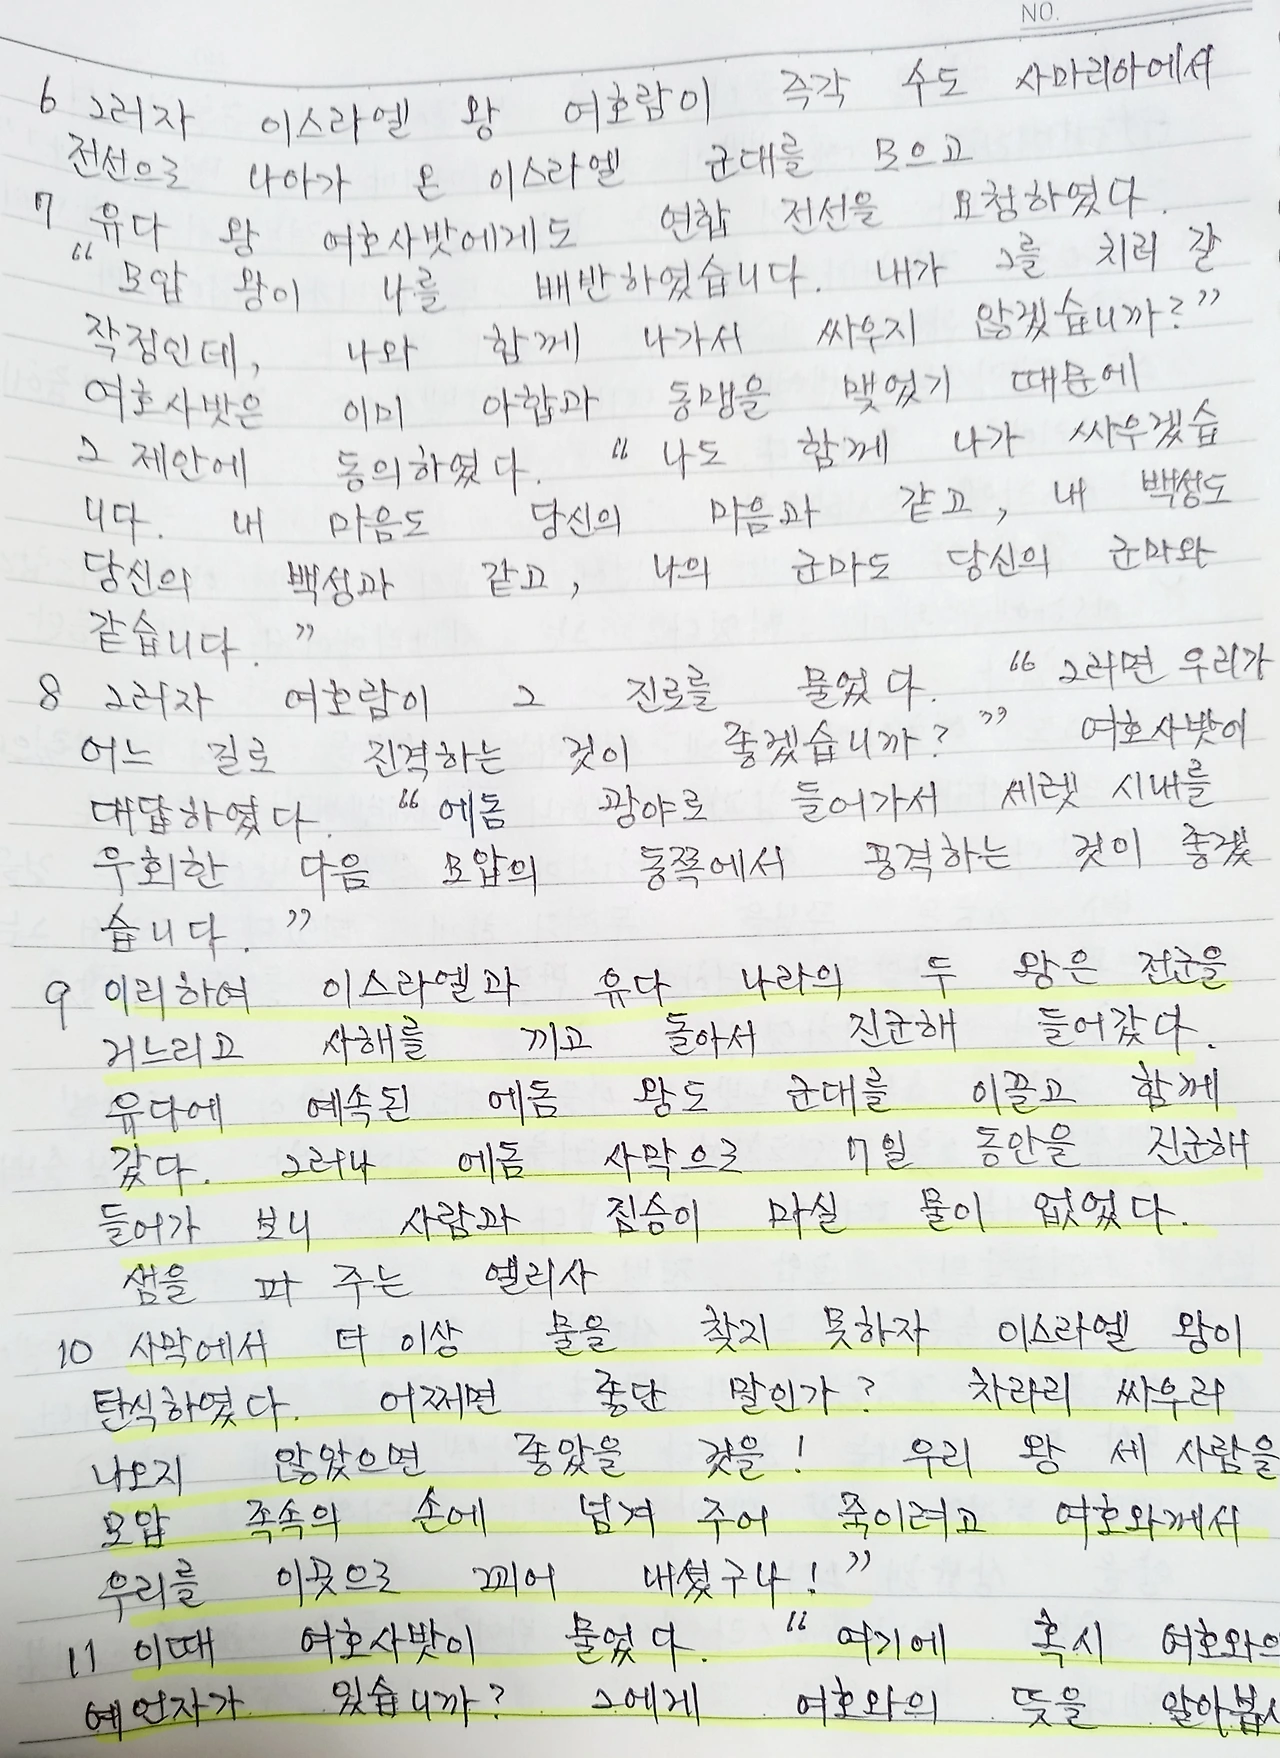 NO.
6 그러자 이스라엘 왕 여호람이 즉각 수도 사마리아에서
전선으로 나아가 온 이스라엘 군대를 모으고
7 유다 왕 여호사밧에게도 연합 전선을 요청하였다.
“ 모압 왕이 나를 배반하였습니다. 내가 그를 치러 갈
작정인데, 나와 함께 나가서 싸우지 않겠습니까?”
여호사밧은 이미 아합과 동맹을 맺었기 때문에
그 제안에 동의하였다. “ 나도 함께 나가 싸우겠습
니다. 내 마음도 당신의 마음과 같고, 내 백성도
당신의 백성과 같고, 나의 군마도 당신의 군마와
같습니다. ”
8 그러자 여호람이 그 진로를 물었다. “ 그러면 우리가
어느 길로 진격하는 것이 좋겠습니까? ” 여호사밧이
대답하였다. “에돔 광야로 들어가서 세렛 시내를
우회한 다음 모압의 동쪽에서 공격하는 것이 좋겠
습니다. ”
9 이리하여 이스라엘과 유다 나라의 두 왕은 전군을
거느리고 사해를 끼고 돌아서 진군해 들어갔다.
유다에 예속된 에돔 왕도 군대를 이끌고 함께
갔다. 그러나 에돔 사막으로 7일 동안을 진군해
들어가 보니 사람과 짐승이 마실 물이 없었다.
샘을 파 주는 엘리사
10 사막에서 더 이상 물을 찾지 못하자 이스라엘 왕이
탄식하였다. 어쩌면 좋단 말인가? 차라리 싸우러
나오지 않았으면 좋았을 것을! 우리 왕 세 사람을
모압 족속의 손에 넘겨 주어 죽이려고 여호와께서
우리를 이곳으로 끄러어 내셨구나! ”
11 이때 여호사밧이 물었다. “ 여기에 혹시 여호와의
예언자가 있습니까? 그에게 여호와의 뜻을 알아봅시